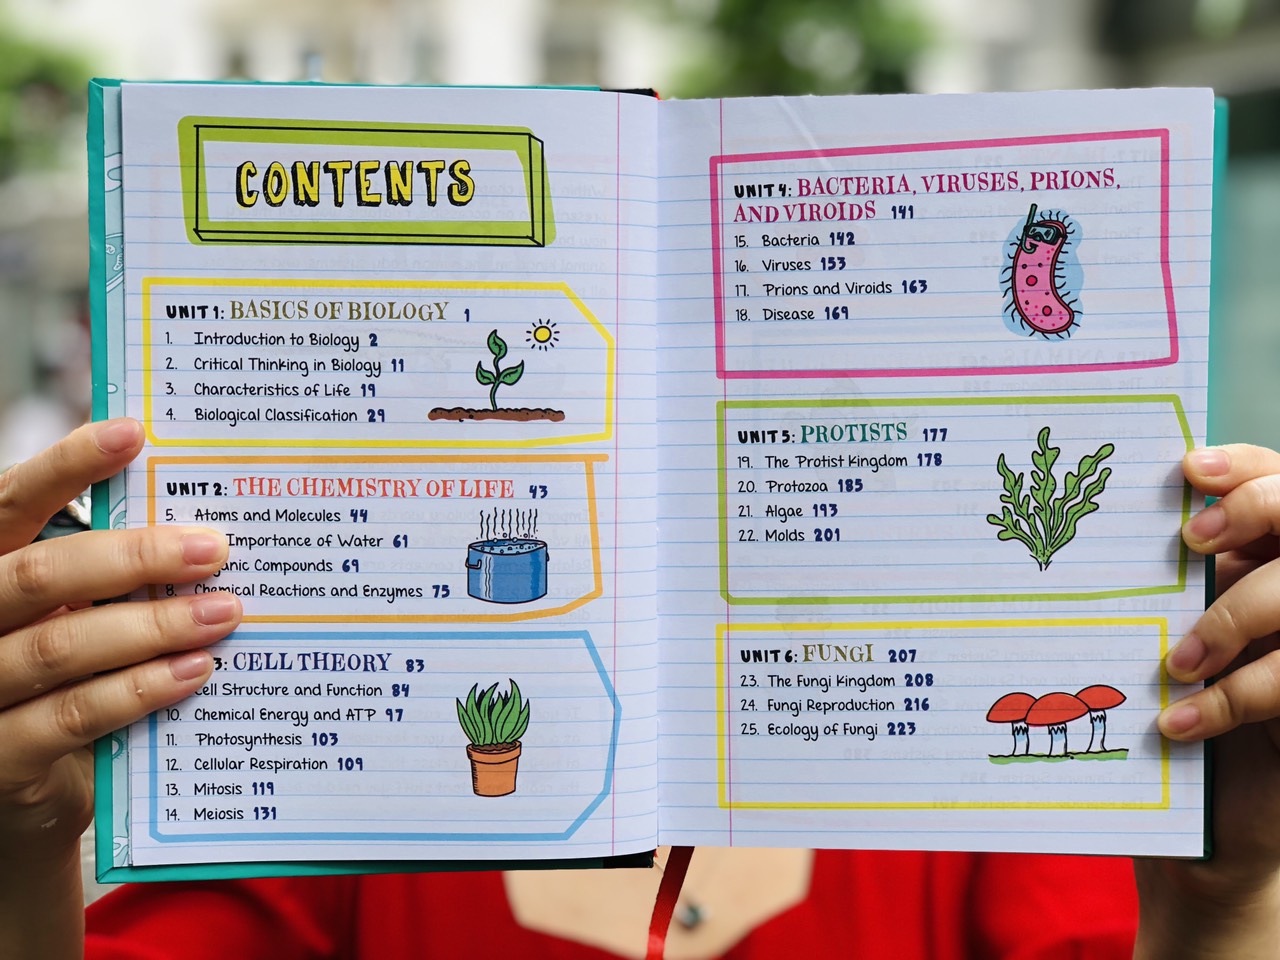 CONTENTS
UNIT 1: BASICS OF BIOLOGY 1
1. Introduction to Biology 2
2. Critical Thinking in Biology 11
3. Characteristics of Life 19
4. Biological Classification 29
UNIT 2: THE CHEMISTRY OF LIFE 43
5. Atoms and Molecules 44
Importance of Water 61
Compounds 69
8. Chemical Reactions and Enzymes 75
3: CELL THEORY 83
Cell Structure and Function 84
10. Chemical Energy and ATP 97
11. Photosynthesis 103
12. Cellular Respiration 109
13. Mitosis 119
14. Meiosis 131
UNIT 4: BACTERIA, VIRUSES, PRIONS,
AND VIROIDS 141
15. Bacteria 142
16. Viruses 153
17. Prions and Viroids 163
18. Disease 169
UNIT 5: PROTISTS 177
19. The Protist Kingdom 178
20. Protozoa 185
21. Algae 193
22. Molds 201
UNIT 6: FUNGI 207
23. The Fungi Kingdom 208
24. Fungi Reproduction 216
25. Ecology of Fungi 223